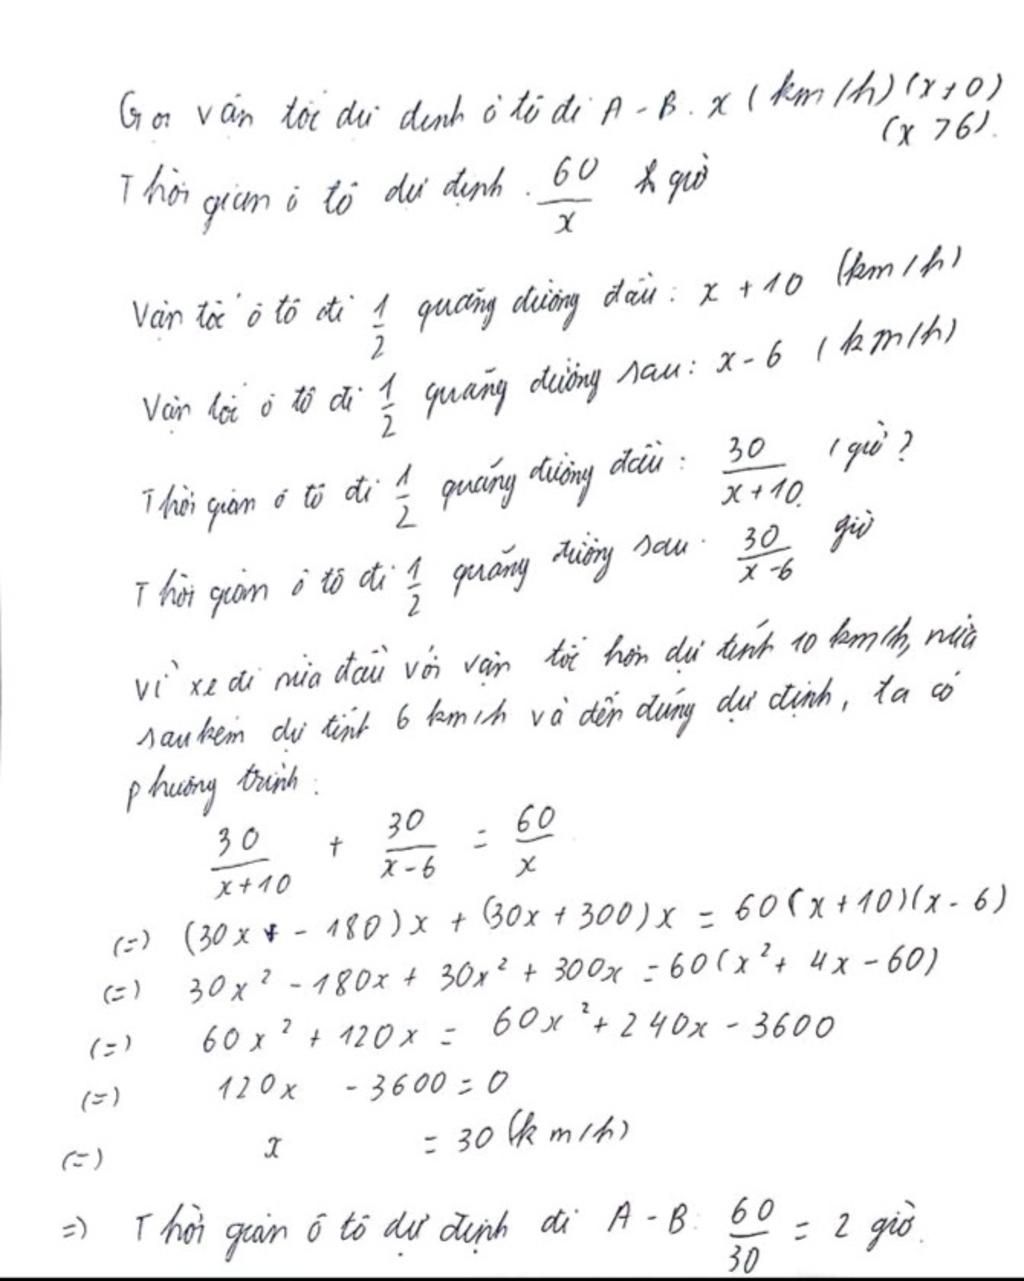 Gọi vận tốc dự định ô tô đi A - B. x (km/h) (x>0)
(x >6).
Thời gian ô tô dự định . 60/x giờ
Vận tốc ô tô đi 1/2 quãng đường đầu: x + 10 (km/h)
Vận tốc ô tô đi 1/2 quãng đường sau: x - 6 (km/h)
Thời gian ô tô đi 1/2 quãng đường đầu: 30/(x+10) (giờ)
Thời gian ô tô đi 1/2 quãng đường sau. 30/(x-6) giờ
Vì xe đi nửa đầu với vận tốc hơn dự tính 10 km/h, nửa
sau kém dự tính 6 km/h và đến đúng dự định, ta có
phương trình:
30/(x+10) + 30/(x-6) = 60/x
(=) (30x - 180)x + (30x + 300)x = 60(x+10)(x-6)
(=) 30x² - 180x + 30x² + 300x = 60(x² + 4x - 60)
(=) 60x² + 120x = 60x² + 240x - 3600
(=) 120x - 3600 = 0
(=) x = 30 (km/h)
=) Thời gian ô tô dự định đi A - B: 60/30 = 2 giờ.